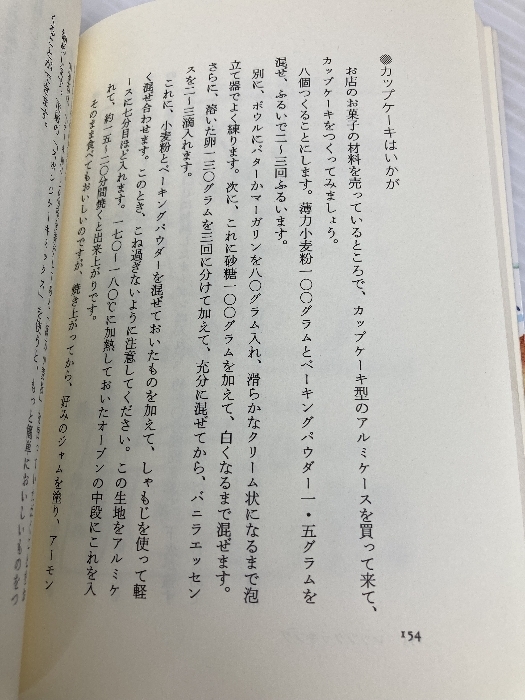 ●カップケーキはいかが
お店のお菓子の材料を売っているところで、カップケーキ型のアルミケースを買って来て、
カップケーキをつくってみましょう。
八個つくることにします。薄力小麦粉一〇〇グラムとベーキングパウダー一・五グラムを
混ぜ、ふるいで二〜三回ふるいます。
別に、ボウルにバターかマーガリンを八〇グラム入れ、滑らかなクリーム状になるまで泡
立て器でよく練ります。次に、これに砂糖一〇〇グラムを加えて、白くなるまで混ぜます。
さらに、溶いた卵一三〇グラムを三回に分けて加えて、充分に混ぜてから、バニラエッセン
スを二〜三滴入れます。
これに、小麦粉とベーキングパウダーを混ぜておいたものを加えて、しゃもじを使って軽
く混ぜ合わせます。このとき、こね過ぎないように注意してください。この生地をアルミケ
ースに七分目ほど入れます。一七〇〜一八〇℃に加熱しておいたオーブンの中段にこれを入
れて、約一五〜二〇分間焼くと出来上がりです。
そのまま食べてもおいしいのですが、焼き上がってから、好みのジャムを塗り、アーモン
を使うと、もっと簡単においしいものをつ
154